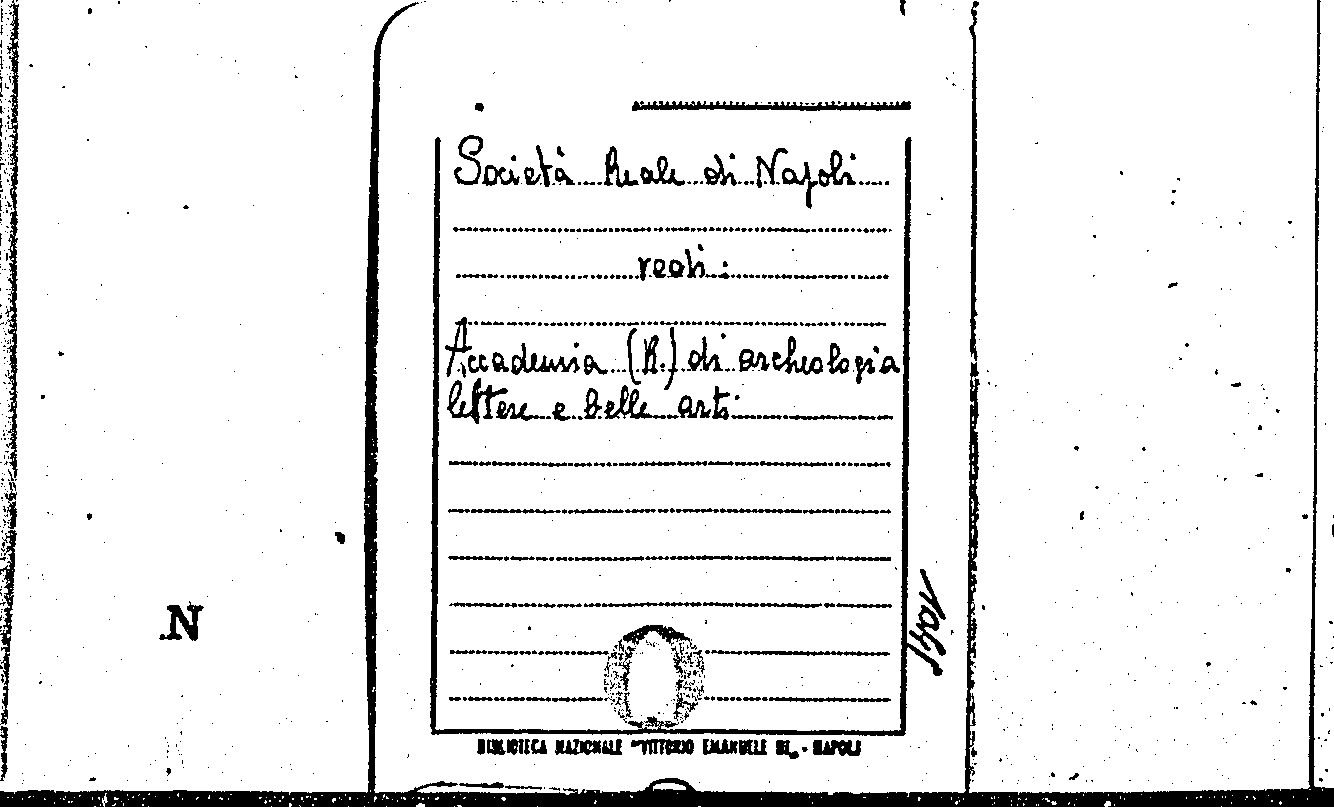 Società Reale di Napoli
vedi:
Accademia (R.) di archeologia
lettere e belle arti
BIBLIOTECA NAZIONALE "VITTORIO EMANUELE III„ - NAPOLI
N